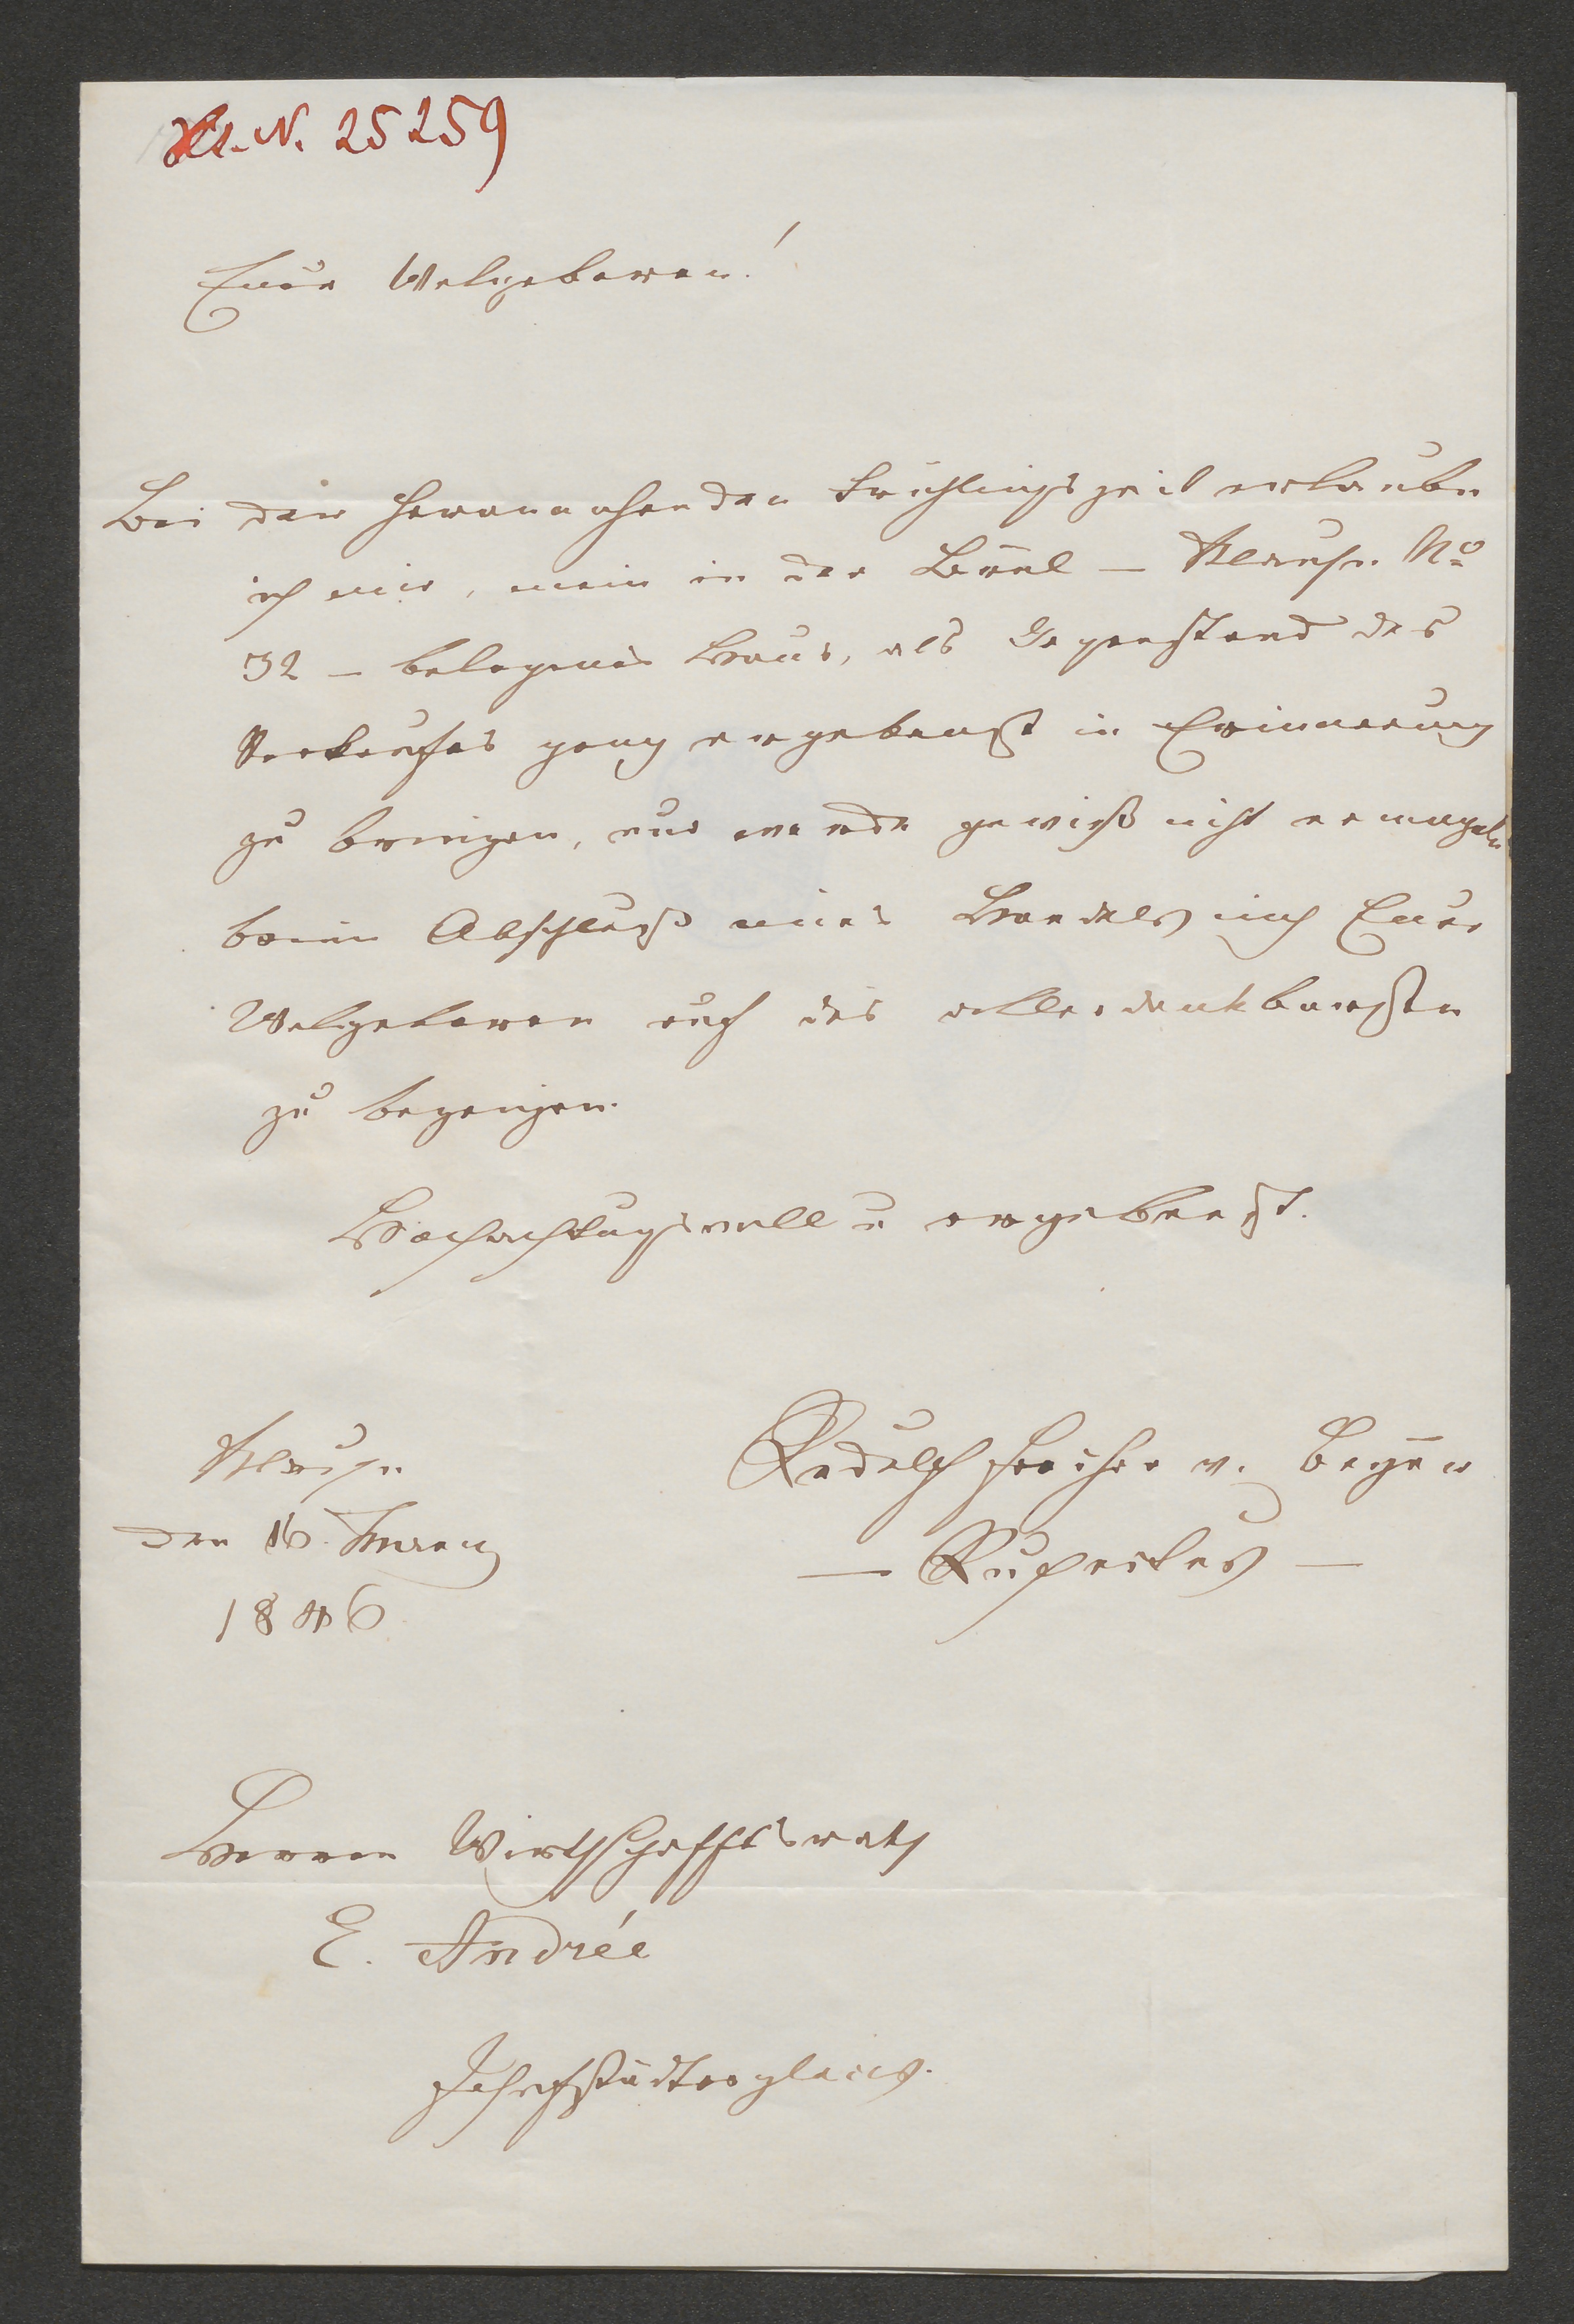 H.I.N. 25259
Euer Wolgeboren!
Bei der herannahenden Frühlingszeit erlaube
ich mir, mein in der Brühl – No
32 – belegenes Haus, als Gegenstand des
Verkaufes ganz ergebenst in Erinnerung
zu bringen, und werde gewiß nicht ermangeln
beim Abschluß eines Handels mich Euer
Wolgeboren auch des allerdankbarsten
zu bezeigen.
Hochachtungsvoll u ergebenst.
Rudolf Freiherr v.
den 16. März
1846
Herrn Wirthschaftsrath
E. Andrée